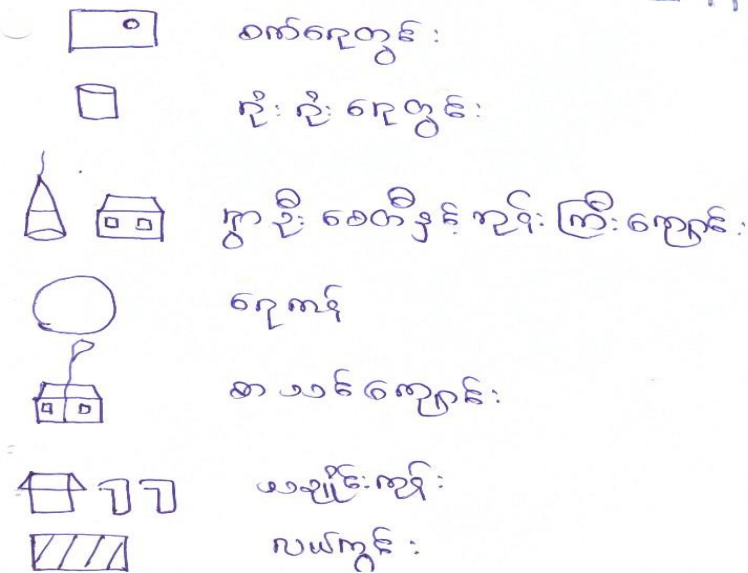 စက်ရေတွင်း
ရိုးရိုးရေတွင်း
ရွာဦးစေတီနှင့်ဘုန်းကြီးကျောင်း
ရေကန်
စာသင်ကျောင်း
သချိုင်းကုန်း
လယ်ကွင်း